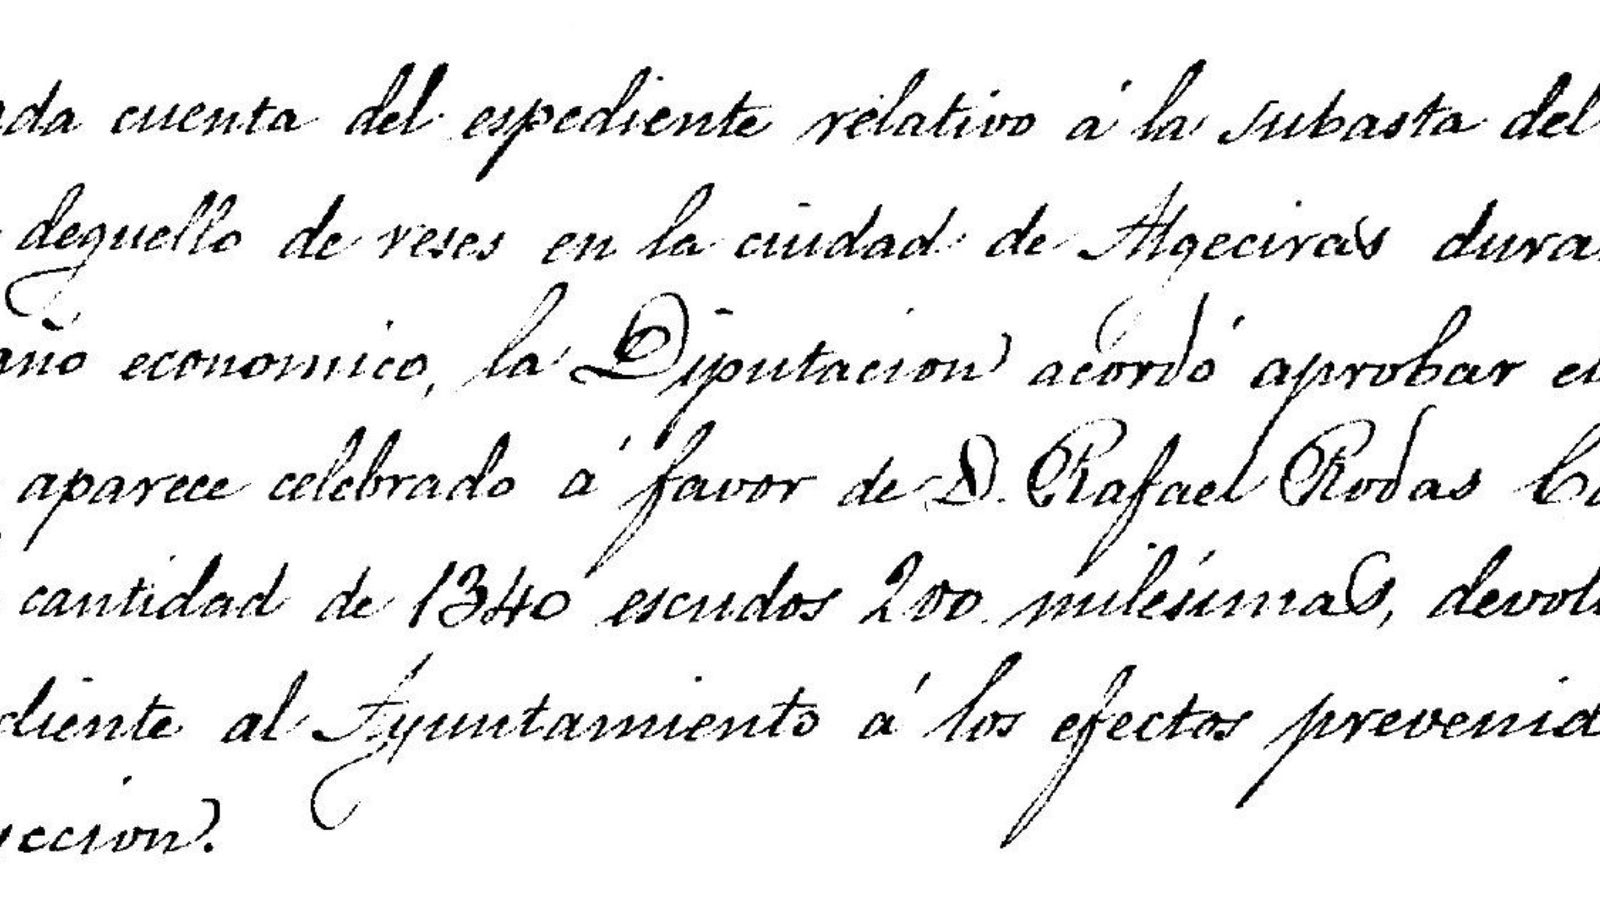 da cuenta del espediente relativo á la subasta del
deguello de reses en la ciudad de Algeciras dura
año economico, la Diputacion acordó aprobar el
aparece celebrado á favor de D. Rafael Rodas
cantidad de 1340 escudos 200 milésimas, devol
diente al Ayuntamiento á los efectos prevenid
ccion.